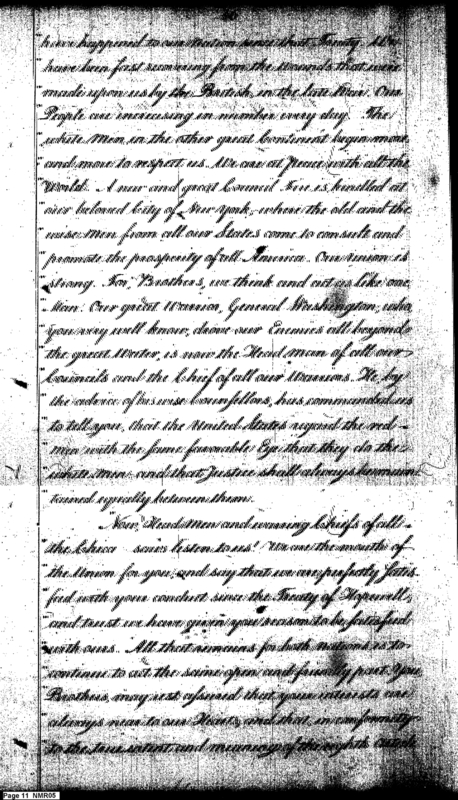 have happened to our Nation since that Treaty. We
have been fast recovering from the Wounds that were
made upon us by the British, in the late War. Our
People are increasing in number every day. The
white Men in the other great Continent begin more
and more to respect us. We are at Peace with all the
World. A new and great Council Fire is kindled at
our beloved City of New York, where the old and the
wise Men from all our States come to consult and
promote the prosperity of all America. Our Union is
strong. For, Brothers, we think and act as like one
Man. Our great Warrior, General Washington, who,
you very well know, drove our Enemies all beyond
the great Water, is now the Head man of all our
Councils and the Chief of all our Warriors. He, by
the advice of his wise Counsellors, has commanded us
to tell you, that the United States regard the red
men with the same favorable Eye that they do the
white Men and that Justice shall always be main
tained equally between them.
Now, Head Men and warring Chiefs of all
the Chica saws listen to us! We are the mouth of
the Union for you, and say that we are perfectly satis
fied with your conduct since the Treaty of Hopewell,
and trust we have given you reason to be satisfied
with ours. All that remains for both nations is to
continue to act the same open and friendly part. You
Brothers, may rest assured that your interests are
always near to our Hearts, and that in conformity
to the true intent and meaning of the eighth Article
Page 11 NMR05